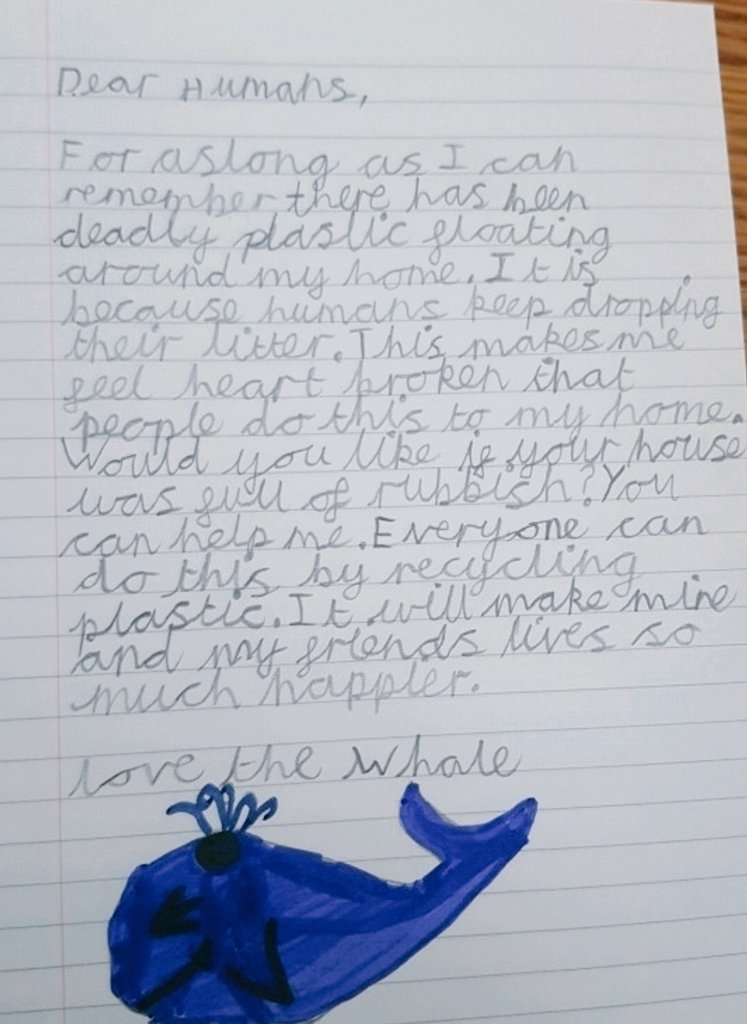 Dear Humans,
For aslong as I can
remember there has been
deadly plastic floating
around my home. It is
because humans keep dropping
their litter. This makes me
feel heart broken that
people do this to my home.
Would you like if your house
was full of rubbish? You
can help me. Everyone can
do this by recycling
plastic. It will make mine
and my friends lives so
much happier.
love the whale